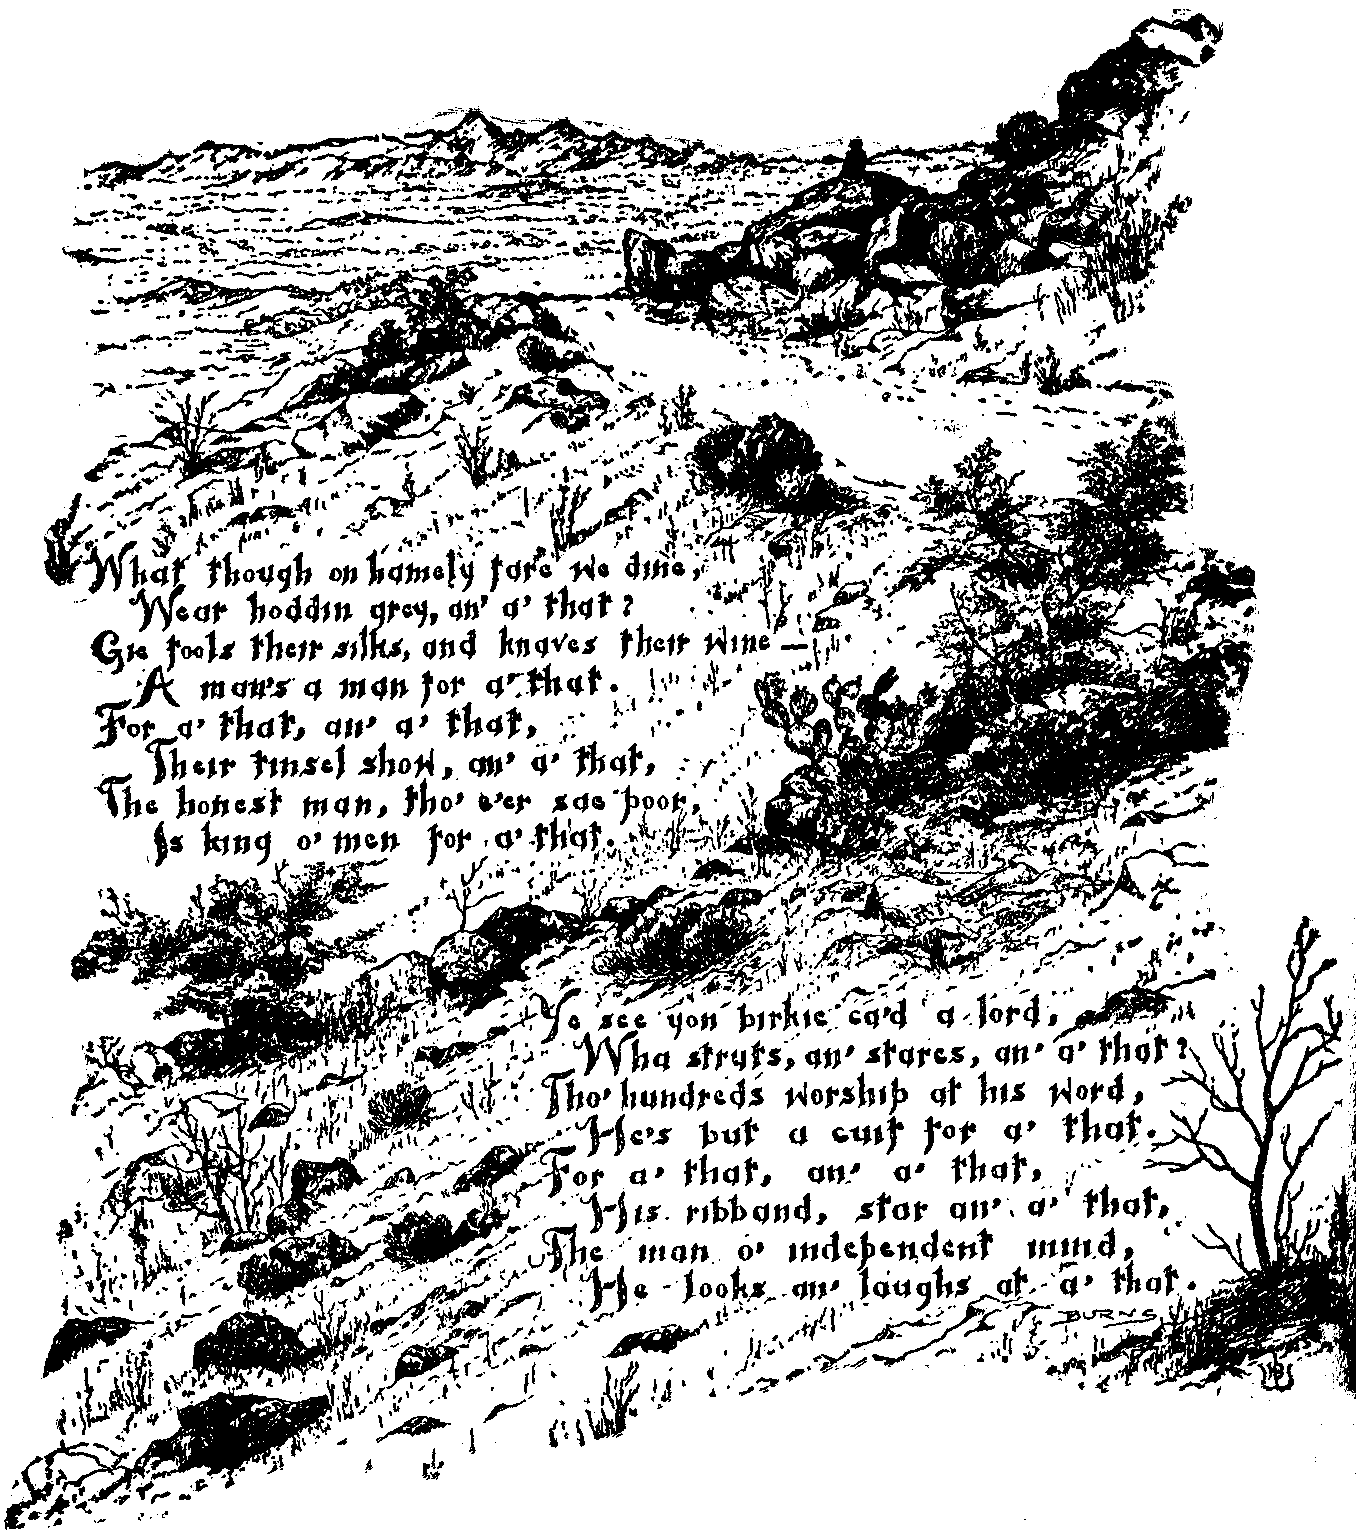 What though on hamely fare we dine,
Wear hoddin grey, an' a' that?
Gie fools their silks, and knaves their wine —
A man's a man for a' that.
For a' that, an' a' that,
Their tinsel show, an' a' that,
The honest man, tho' e'er sae poor,
Is king o' men for a' that.
Ye see yon birkie ca'd a lord,
Wha struts, an' stares, an' a' that?
Tho' hundreds worship at his word,
He's but a cuif for a' that.
For a' that, an' a' that,
His ribband, star an' a' that,
The man o' independent mind,
He looks an' laughs at a' that.
BURNS